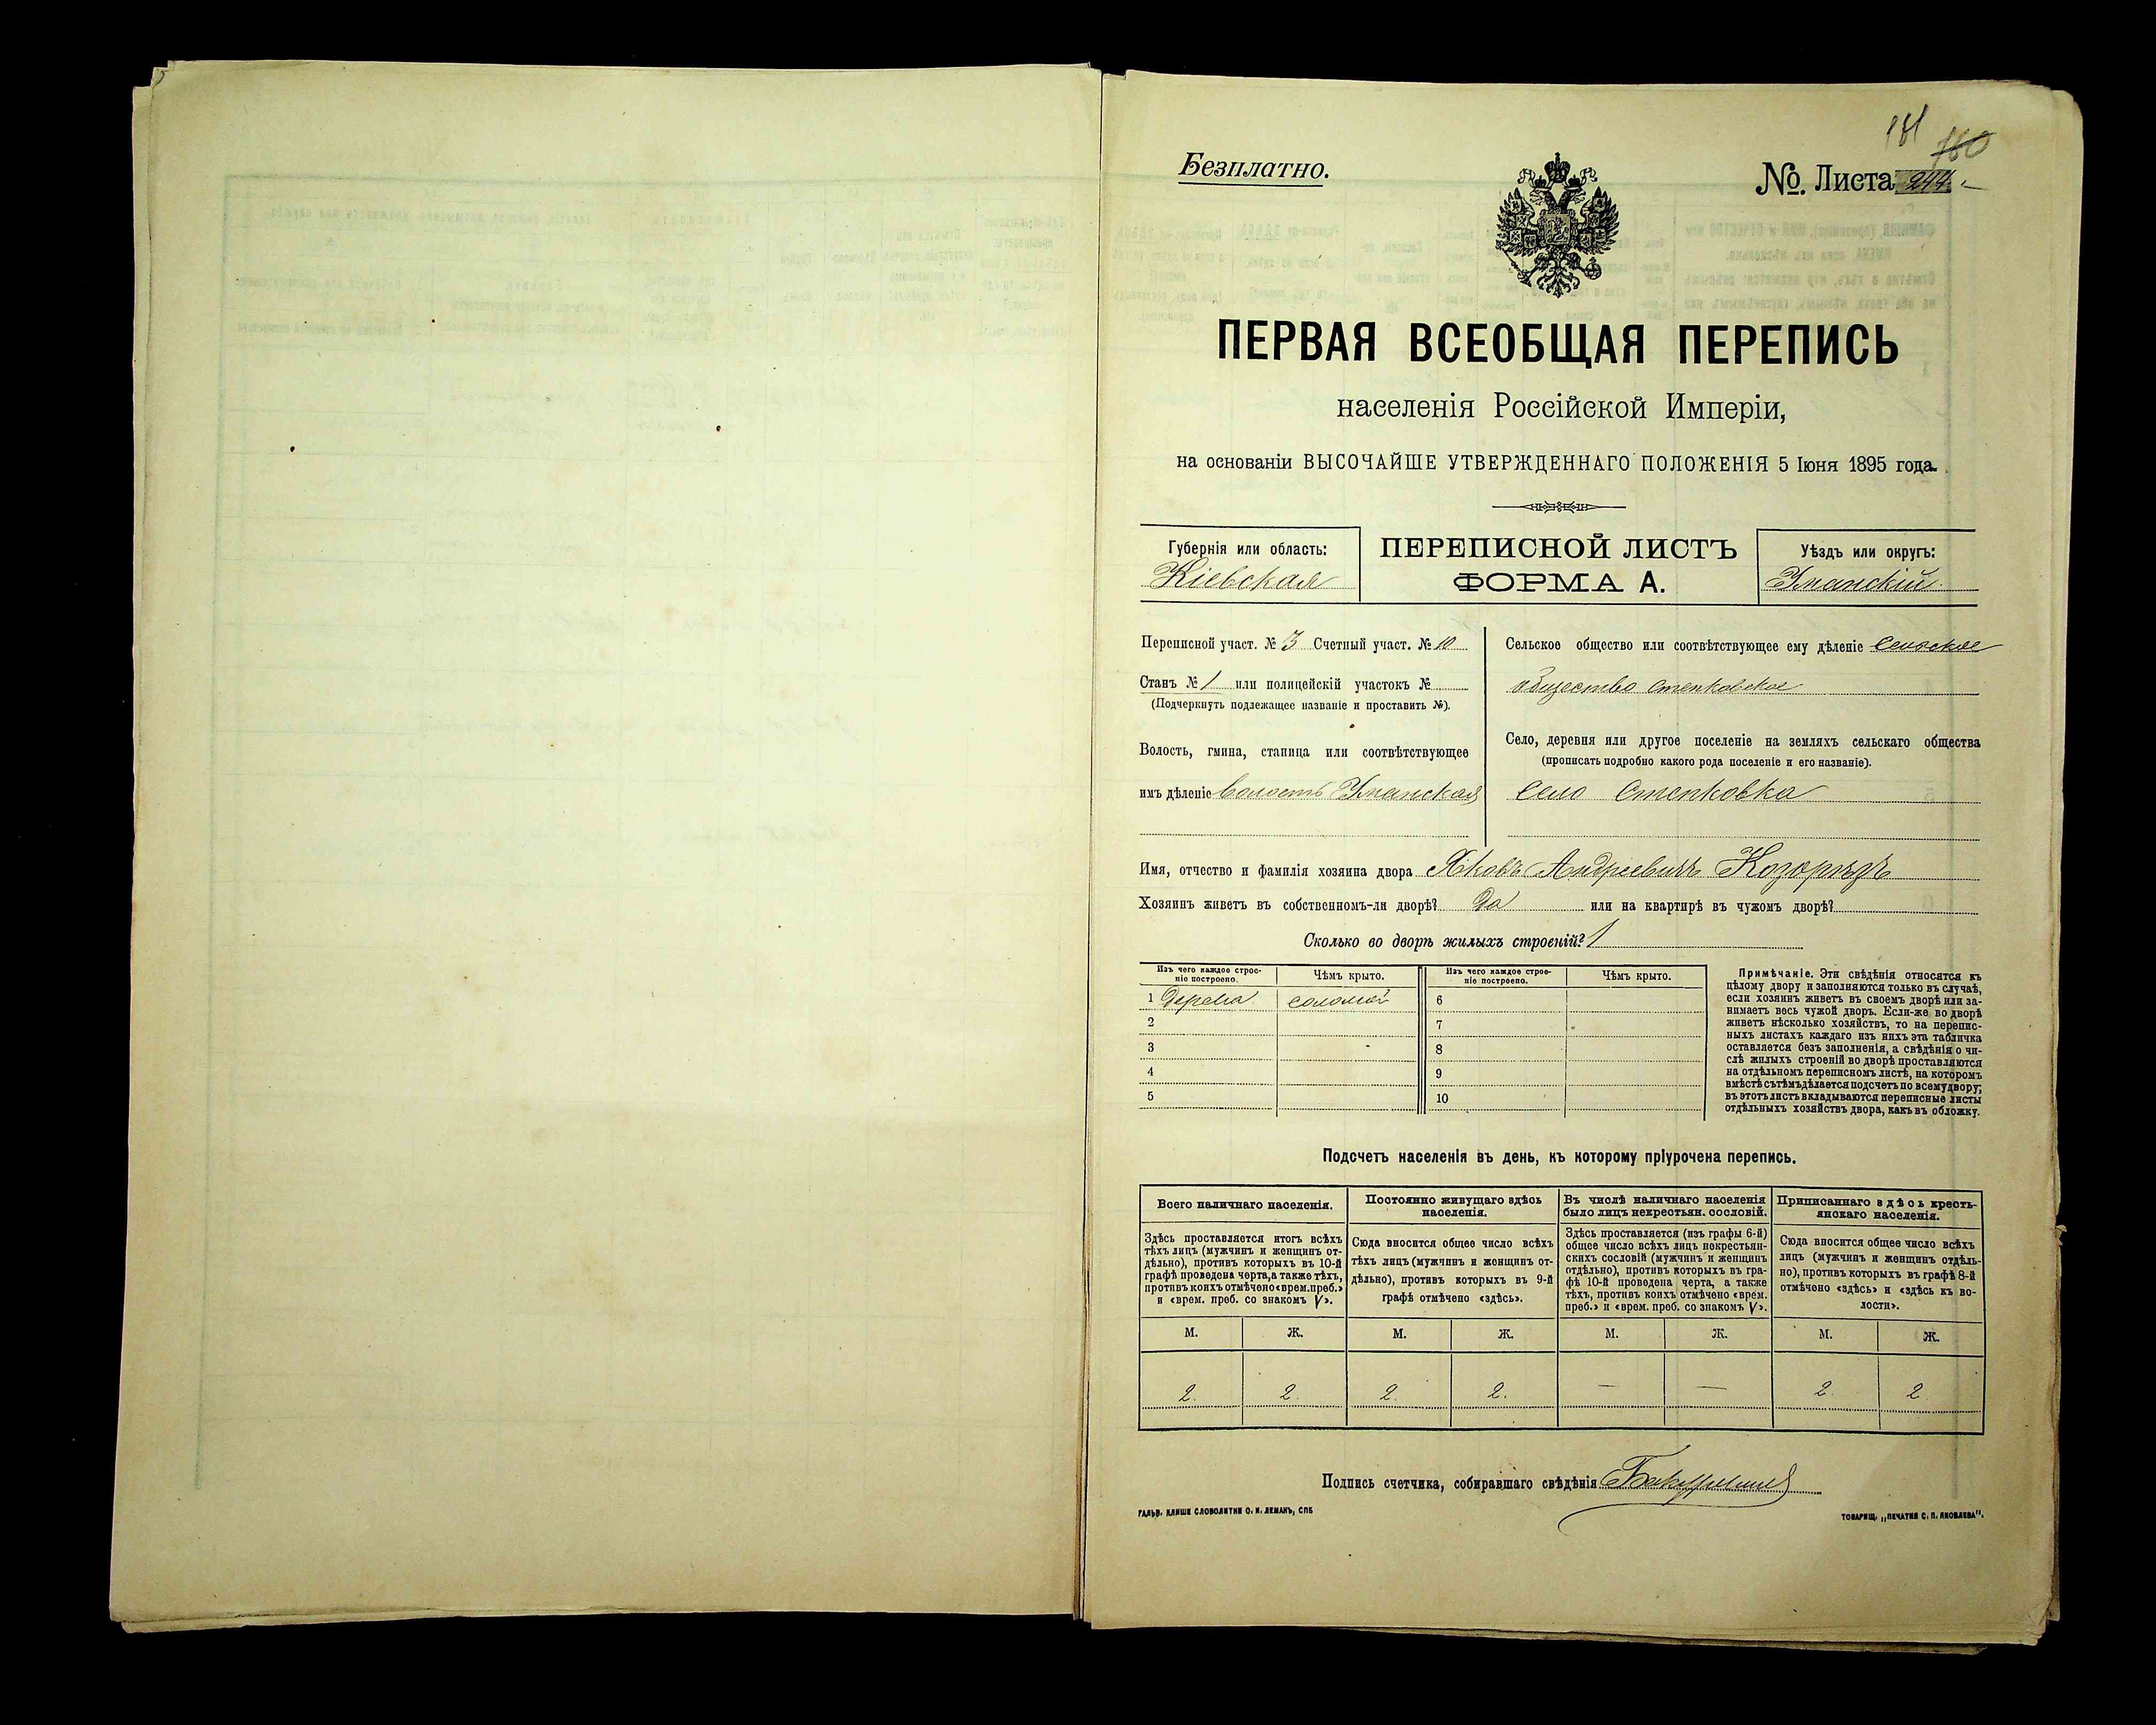 181
160
Безплатно.
№. Листа 244.
ПЕРВАЯ ВСЕОБЩАЯ ПЕРЕПИСЬ
населенія Россійской Имперіи,
на основаніи ВЫСОЧАЙШЕ УТВЕРЖДЕННАГО ПОЛОЖЕНІЯ 5 Іюня 1895 года.
Губернія или область:
Кіевская
ПЕРЕПИСНОЙ ЛИСТЪ
ФОРМА А.
Уѣздъ или округъ:
Уманскій
Переписной участ. № 3 Счетный участ. № 10
Станъ № 1 или полицейскій участокъ №
(Подчеркнуть подлежащее названіе и проставить №).
Волость, гмина, станица или соотвѣтствующее
имъ дѣленіе волость Уманская
Сельское общество или соотвѣтствующее ему дѣленіе сельское
общество степковское
Село, деревня или другое поселеніе на земляхъ сельскаго общества
(прописать подробно какого рода поселеніе и его названіе).
село Степковка
Имя, отчество и фамилія хозяина двора Яковъ Андреевичъ
Хозяинъ живетъ въ собственномъ-ли дворѣ? Да или на квартирѣ въ чужомъ дворѣ?
Сколько во дворѣ жилыхъ строеній? 1
Изъ чего каждое строеніе построено.
Чѣмъ крыто.
Изъ чего каждое строеніе построено.
Чѣмъ крыто.
1 Дерева соломой 6
2 7
3 8
4 9
5 10
Примѣчаніе. Эти свѣдѣнія относятся къ
цѣлому двору и заполняются только въ случаѣ,
если хозяинъ живетъ въ своемъ дворѣ или за-
нимаетъ весь чужой дворъ. Если-же во дворѣ
живетъ нѣсколько хозяйствъ, то на перепис-
ныхъ листахъ каждаго изъ нихъ эта табличка
оставляется безъ заполненія, а свѣдѣнія о чи-
слѣ жилыхъ строеній во дворѣ проставляются
на отдѣльномъ переписномъ листѣ, на которомъ
вмѣстѣ съ тѣмъ дѣлается подсчетъ по всему двору;
въ этотъ листъ вкладываются переписные листы
отдѣльныхъ хозяйствъ двора, какъ въ обложку.
Подсчетъ населенія въ день, къ которому пріурочена перепись.
Всего наличнаго населенія.
Здѣсь проставляется итогъ всѣхъ
тѣхъ лицъ (мужчинъ и женщинъ от-
дѣльно), противъ которыхъ въ 10-й
графѣ проведена черта, а также тѣхъ,
противъ коихъ отмѣчено «врем. преб.»
и «врем. преб. со знакомъ V».
Постоянно живущаго здѣсь
населенія.
Сюда вносится общее число всѣхъ
тѣхъ лицъ (мужчинъ и женщинъ от-
дѣльно), противъ которыхъ въ 9-й
графѣ отмѣчено «здѣсь».
Въ числѣ наличнаго населенія
было лицъ некрестьян. сословій.
Здѣсь проставляется (изъ графы 6-й)
общее число всѣхъ лицъ некрестьян-
скихъ сословій (мужчинъ и женщинъ
отдѣльно), противъ которыхъ въ гра-
фѣ 10-й проведена черта, а также
тѣхъ, противъ коихъ отмѣчено «врем.
преб.» и «врем. преб. со знакомъ V».
Приписаннаго здѣсь кресть-
янскаго населенія.
Сюда вносится общее число всѣхъ
лицъ (мужчинъ и женщинъ отдѣль-
но), противъ которыхъ въ графѣ 8-й
отмѣчено «здѣсь» и «здѣсь къ во-
лости».
М. Ж. М. Ж. М. Ж. М. Ж.
2. 2. 2. 2. — — 2. 2.
Подпись счетчика, собиравшаго свѣдѣнія
ГАЛЬВ. КЛИШЕ СЛОВОЛИТНИ О. И. ЛЕМАНЪ, СПБ
ТОВАРИЩ. „ПЕЧАТНЯ С. П. ЯКОВЛЕВА".